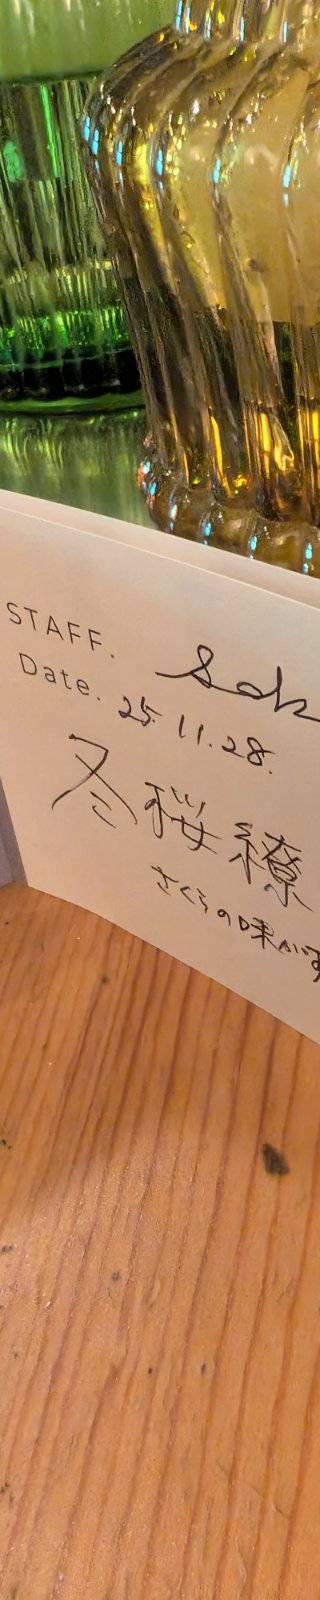 STAFF. Sak
Date. 25 11.28.
冬桜繚
さくらの味がす